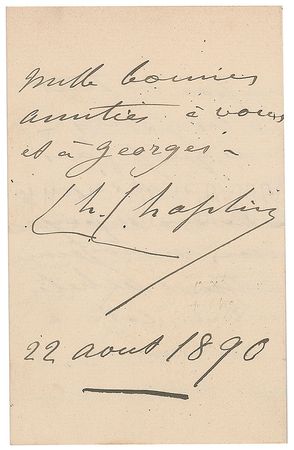 mille bonnes
amitiés à vous
et à Georges -
Ch. Chaplin
22 aout 1890